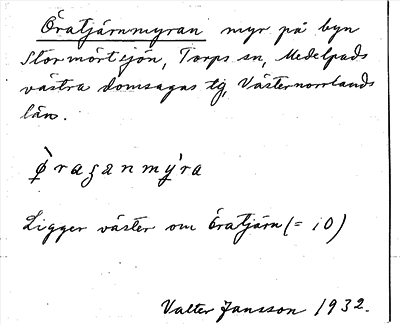 Öratjärnmyran myr på byn
Stormörtsjön, Torps sn, Medelpads
västra domsagas tg, Västernorrlands
län.
ø̀raʒanmýra
Ligger väster om Öratjärn (= iO)
Valter Jansson 1932.